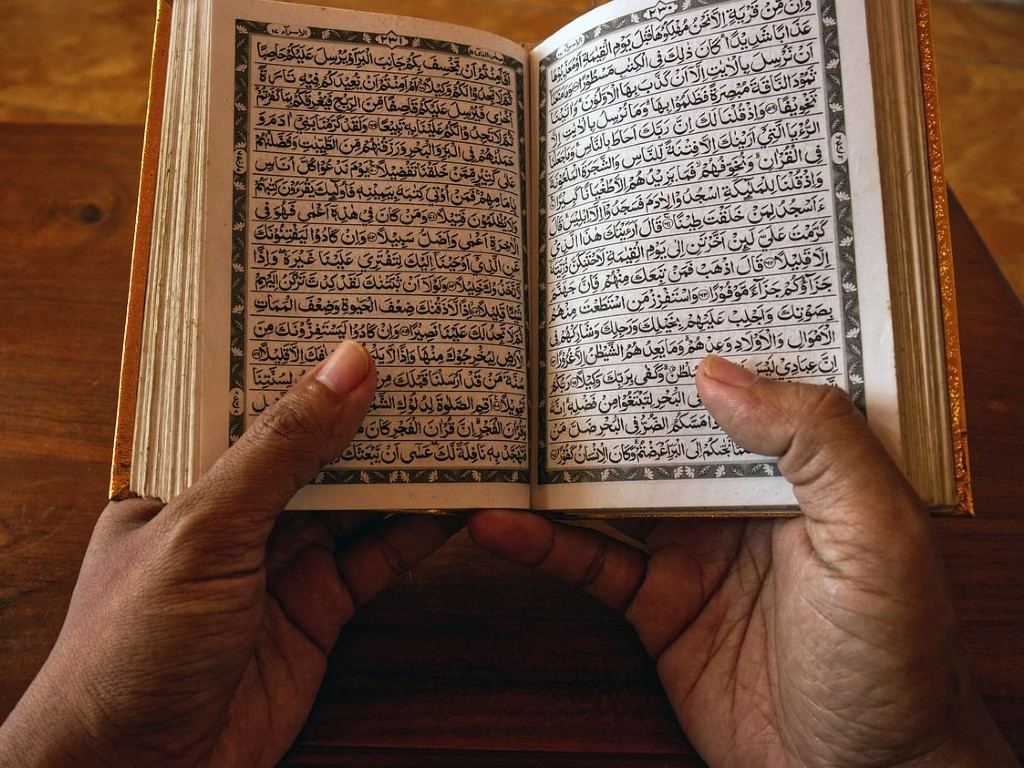 وَاِنْ مِّنْ قَرْيَةٍ اِلَّا نَحْنُ مُهْلِكُوْهَا قَبْلَ يَوْمِ الْقِيٰمَةِ اَوْ مُعَذِّبُوْهَا
عَذَابًا شَدِيْدًا كَانَ ذٰلِكَ فِي الْكِتٰبِ مَسْطُوْرًا وَمَا مَنَعَنَا
اَنْ نُّرْسِلَ بِالْاٰيٰتِ اِلَّا اَنْ كَذَّبَ بِهَا الْاَوَّلُوْنَ وَاٰتَيْنَا
ثَمُوْدَ النَّاقَةَ مُبْصِرَةً فَظَلَمُوْا بِهَا وَمَا نُرْسِلُ بِالْاٰيٰتِ اِلَّا
تَخْوِيْفًا وَاِذْ قُلْنَا لَكَ اِنَّ رَبَّكَ اَحَاطَ بِالنَّاسِ وَمَا جَعَلْنَا
الرُّءْيَا الَّتِيْ اَرَيْنٰكَ اِلَّا فِتْنَةً لِّلنَّاسِ وَالشَّجَرَةَ الْمَلْعُوْنَةَ
فِي الْقُرْاٰنِ وَنُخَوِّفُهُمْ فَمَا يَزِيْدُهُمْ اِلَّا طُغْيَانًا كَبِيْرًا
وَاِذْ قُلْنَا لِلْمَلٰٓئِكَةِ اسْجُدُوْا لِاٰدَمَ فَسَجَدُوْا اِلَّا اِبْلِيْسَ قَالَ
ءَاَسْجُدُ لِمَنْ خَلَقْتَ طِيْنًا قَالَ اَرَءَيْتَكَ هٰذَا الَّذِيْ
كَرَّمْتَ عَلَيَّ لَئِنْ اَخَّرْتَنِ اِلٰى يَوْمِ الْقِيٰمَةِ لَاَحْتَنِكَنَّ ذُرِّيَّتَهٗ
اِلَّا قَلِيْلًا قَالَ اذْهَبْ فَمَنْ تَبِعَكَ مِنْهُمْ فَاِنَّ جَهَنَّمَ
جَزَآؤُكُمْ جَزَآءً مَّوْفُوْرًا وَاسْتَفْزِزْ مَنِ اسْتَطَعْتَ مِنْهُمْ
بِصَوْتِكَ وَاَجْلِبْ عَلَيْهِمْ بِخَيْلِكَ وَرَجِلِكَ وَشَارِكْهُمْ فِي
الْاَمْوَالِ وَالْاَوْلَادِ وَعِدْهُمْ وَمَا يَعِدُهُمُ الشَّيْطٰنُ اِلَّا غُرُوْرًا
اِنَّ عِبَادِيْ لَيْسَ سُلْطٰنٌ وَكَفٰى بِرَبِّكَ وَكِيْلًا رَبُّكُمُ
فِي الْبَحْرِ لِتَبْتَغُوْا مِنْ فَضْلِهٖ اِنَّهٗ
مَسَّكُمُ الضُّرُّ فِي الْبَحْرِ ضَلَّ مَنْ
نَجّٰكُمْ اِلَى الْبَرِّ اَعْرَضْتُمْ وَكَانَ الْاِنْسَانُ كَفُوْرًا
اَفَاَمِنْتُمْ اَنْ يَّخْسِفَ بِكُمْ جَانِبَ الْبَرِّ اَوْ يُرْسِلَ عَلَيْكُمْ حَاصِبًا
ثُمَّ لَا تَجِدُوْا لَكُمْ وَكِيْلًا اَمْ اَمِنْتُمْ اَنْ يُّعِيْدَكُمْ فِيْهِ تَارَةً
اُخْرٰى فَيُرْسِلَ عَلَيْكُمْ قَاصِفًا مِّنَ الرِّيْحِ فَيُغْرِقَكُمْ بِمَا كَفَرْتُمْ
ثُمَّ لَا تَجِدُوْا لَكُمْ عَلَيْنَا بِهٖ تَبِيْعًا وَلَقَدْ كَرَّمْنَا بَنِيْٓ اٰدَمَ وَ
حَمَلْنٰهُمْ فِي الْبَرِّ وَالْبَحْرِ وَرَزَقْنٰهُمْ مِّنَ الطَّيِّبٰتِ وَفَضَّلْنٰهُمْ
عَلٰى كَثِيْرٍ مِّمَّنْ خَلَقْنَا تَفْضِيْلًا يَوْمَ نَدْعُوْا كُلَّ اُنَاسٍ
بِاِمَامِهِمْ فَمَنْ اُوْتِيَ كِتٰبَهٗ بِيَمِيْنِهٖ فَاُولٰٓئِكَ يَقْرَءُوْنَ كِتٰبَهُمْ
وَلَا يُظْلَمُوْنَ فَتِيْلًا وَمَنْ كَانَ فِيْ هٰذِهٖٓ اَعْمٰى فَهُوَ فِي
الْاٰخِرَةِ اَعْمٰى وَاَضَلُّ سَبِيْلًا وَاِنْ كَادُوْا لَيَفْتِنُوْنَكَ
عَنِ الَّذِيْٓ اَوْحَيْنَآ اِلَيْكَ لِتَفْتَرِيَ عَلَيْنَا غَيْرَهٗ وَاِذًا
لَّاتَّخَذُوْكَ خَلِيْلًا وَلَوْلَآ اَنْ ثَبَّتْنٰكَ لَقَدْ كِدْتَّ تَرْكَنُ اِلَيْهِمْ
شَيْـًٔا قَلِيْلًا اِذًا لَّاَذَقْنٰكَ ضِعْفَ الْحَيٰوةِ وَضِعْفَ الْمَمَاتِ
ثُمَّ لَا تَجِدُ لَكَ عَلَيْنَا نَصِيْرًا وَاِنْ كَادُوْا لَيَسْتَفِزُّوْنَكَ مِنَ
الْاَرْضِ لِيُخْرِجُوْكَ مِنْهَا وَاِذًا لَّا اِلَّا قَلِيْلًا
سُنَّةَ مَنْ قَدْ اَرْسَلْنَا قَبْلَكَ مِنْ لِسُنَّتِنَا
تَحْوِيْلًا اَقِمِ الصَّلٰوةَ لِدُلُوْكِ
وَقُرْاٰنَ الْفَجْرِ اِنَّ قُرْاٰنَ الْفَجْرِ كَانَ
فَتَهَجَّدْ بِهٖ نَافِلَةً لَّكَ عَسٰٓى اَنْ يَّبْعَثَكَ